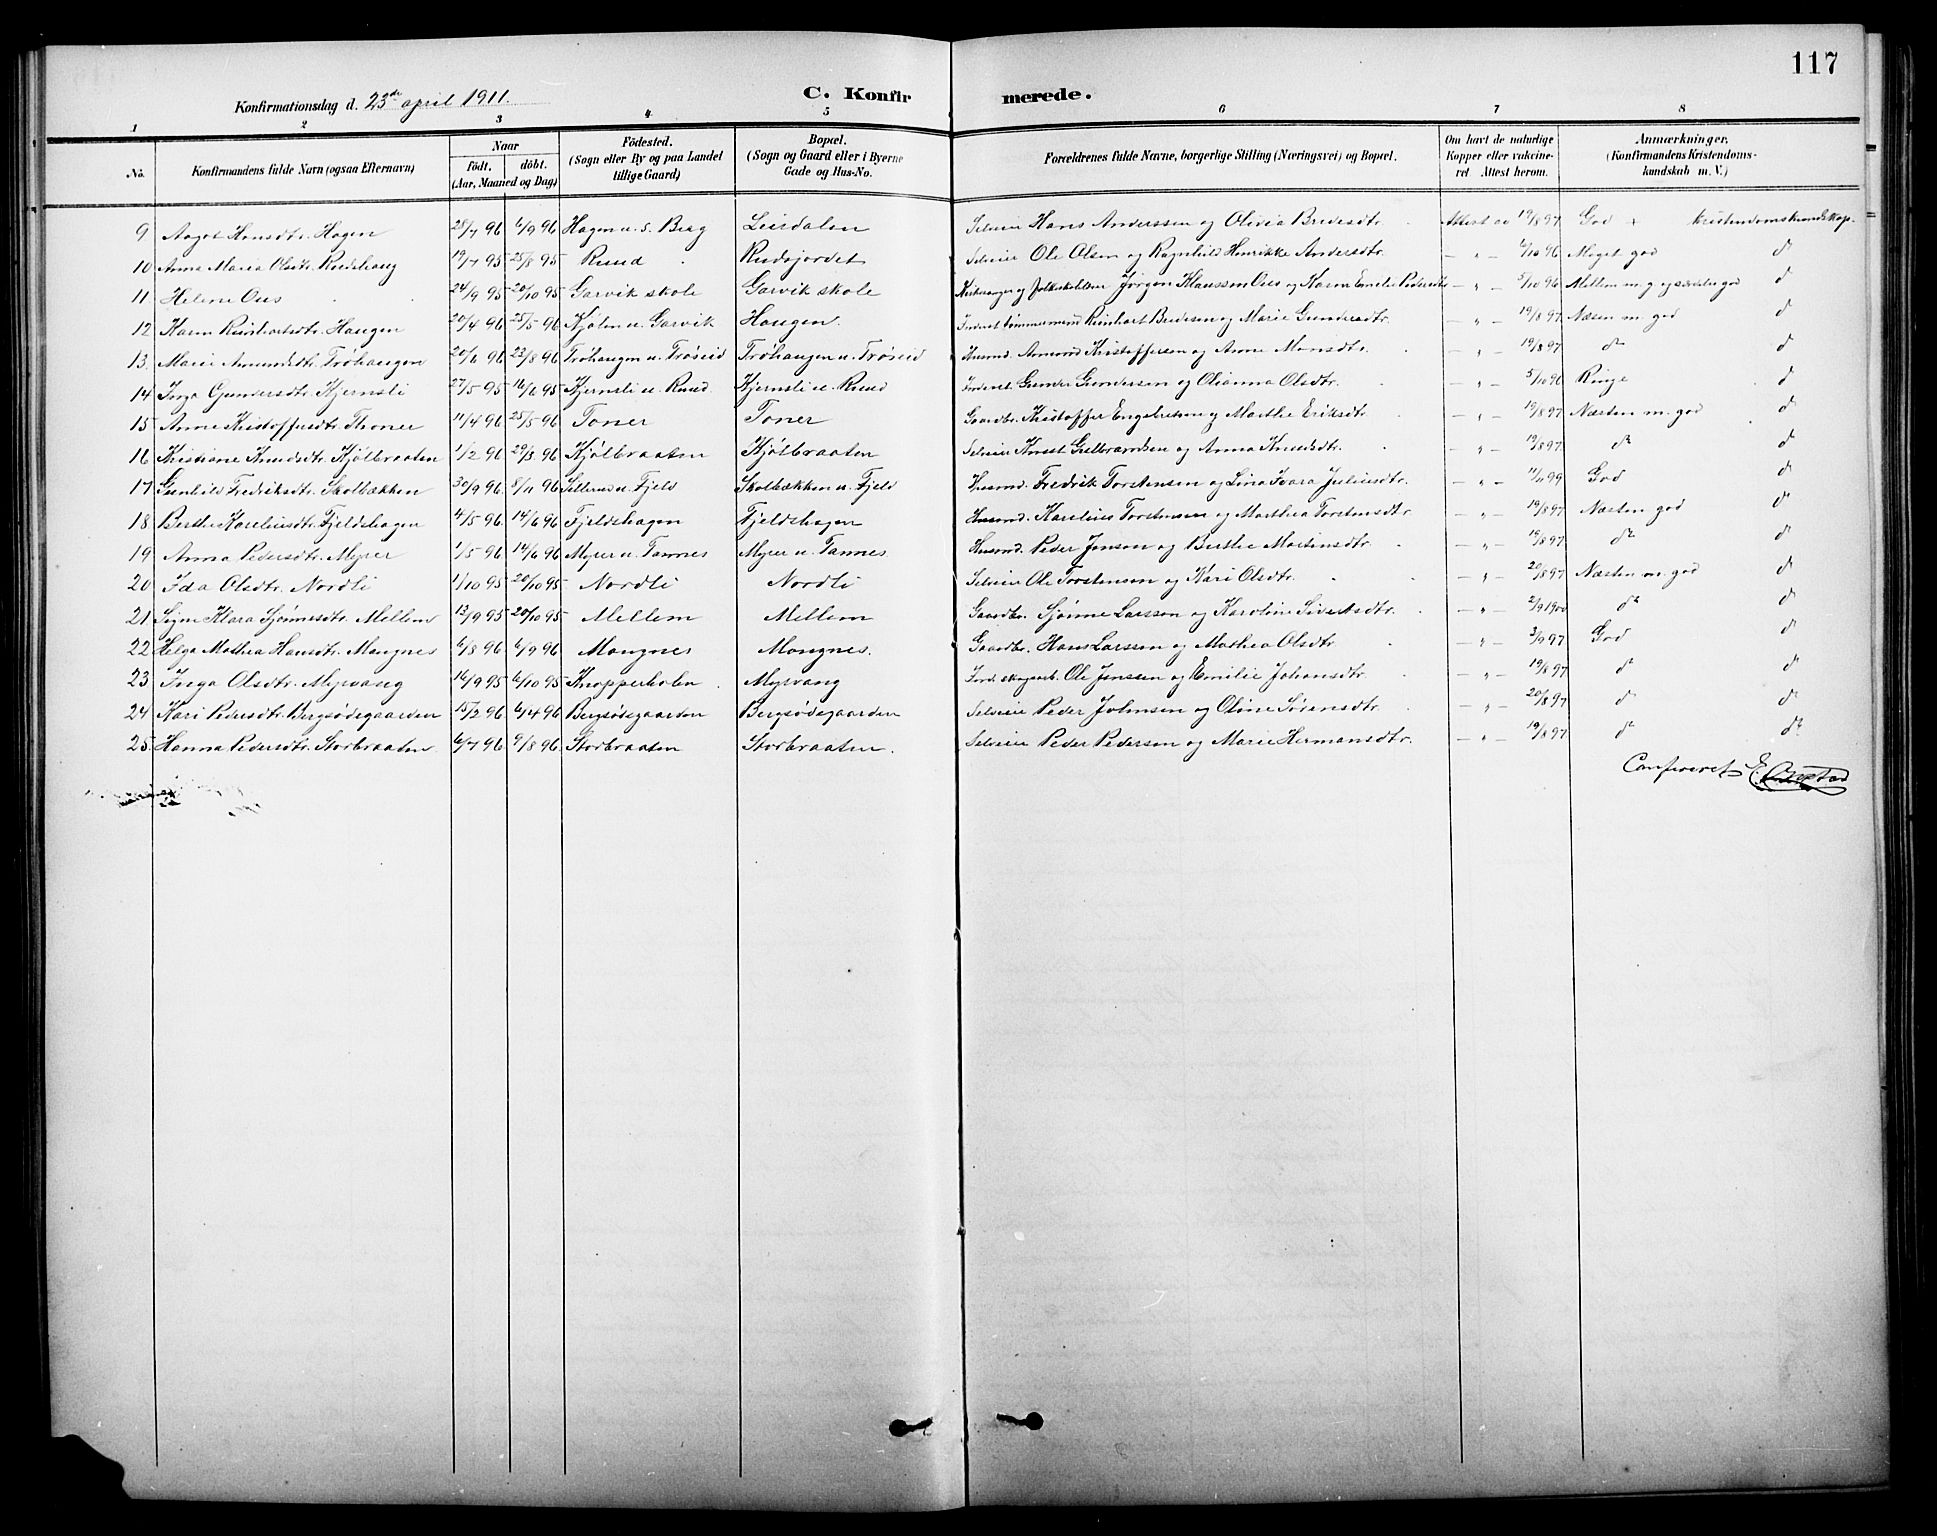 117
Konfirmationsdag d. 23de april 1911.
C. Konfirmerede.
1 2 3 4 5 6 7 8
No. Konfirmandens fulde Navn (ogsaa Efternavn) Naar födt. döbt. (Aar, Maaned og Dag) Födested. (Sogn eller By og paa Landet tillige Gaard) Bopæl. (Sogn og Gaard eller i Byerne Gade og Hus-No. Forældrenes fulde Navne, borgerlige Stilling (Næringsvei) og Bopæl. Om havt de naturlige Kopper eller vakcineret Attest herom. Anmærkninger, (Konfirmandens Kristendomskundskab m. V.)
9 Aagot Hansdtr. Hagen 28/7 96 6/9 96 Hagen u. s. Berg Leirdalen Selveier Hans Anderssen og Olivia Bredesdtr. Attest av 19/8 97 God + kristendomskundskap.
10 Anna Maria Olsdtr. Rudshaug 19/7 95 25/8 95 Ruud Rudsjordet Selveier Ole Olsen og Ragnhild Henrikke Andersdtr. — " — 4/10 96 Meget god do
11 Helene Ous 24/9 95 20/10 95 Garvik skole Garvik skole Kirkesanger og folkeskolelærer Jörgen Klaussen Ous og Karen Emilie Pedersdtr — " — 5/10 96 Mellem m. g og særdeles god do
12 Karen Reinhartsdtr. Haugen 20/4 96 25/5 96 Kjølen u. Garvik Haugen. Inderst Tømmermand Reinhart Bredesen og Marie Gundersdtr. — " — 19/8 97 Næsten m. god do
13 Marie Amundsdtr. Trøhaugen 20/6 96 23/8 96 Trøhaugen u. Trøseid Trøhaugen u. Trøseid Husmd. Amund Kristoffersen og Anne Monsdtr. — " — 19/8 97 do do
14 Inga Gundersdtr. Kjernsli 27/5 95 16/6 95 Kjernsli u. Ruud. Kjernsli u. Ruud Inderst Gunder Gundersen og Olianna Olsdtr. — " — 5/10 96 Ringe do
15 Anne Kristoffersdtr. Thoner 11/4 96 25/5 96 Toner Toner Gaardbr. Kristoffer Engebretsen og Marthe Eriksdtr. — " — 19/8 97 Næsten m. god do
16 Kristiane Knudsdtr. Kjølbraaten 1/2 96 29/3 96 Kjølbraaten Kjølbraaten Selveier Knut Gulbrandsen og Anna Knudsdtr. — " — 19/8 97 do do
17 Gunhild Fredriksdtr. Skolbækken 30/9 96 8/11 96 Sillerud u. Fjeld Skolbækken u. Fjeld Husmd. Fredrik Torstensen og Lina Juliusdtr. — " — 11/11 99 God do
18 Berthe Kareliusdtr. Fjeldshagen 4/5 96 14/6 96 Fjeldshagen Fjeldshagen Husmd. Karelius Torstensen og Marthea Torstensdtr — " — 19/8 97 Næsten god do
19 Anna Pedersdtr. Myrer 1/5 96 14/6 96 Myrer u. Tannes Myrer u. Tannes Husmd. Peder Jensen og Berthe Martinsdtr. — " — 19/8 97 do do
20 Ida Olsdtr. Nordli 1/10 95 20/10 95 Nordli Nordli Selveier Ole Torstensen og Kari Olsdtr. — " — 20/8 97 Næsten m. god do
21 Signe Klara Sjønnesdtr. Mellem 13/9 95 20/10 95 Mellem Mellem Gaardbr. Sjønne Larssen og Karoline Sivertsdtr. — " — 2/9 1900 do do
22 Helga Mathea Hansdtr. Mangnes 6/8 96 6/9 96 Mangnes Mangnes. Gaardbr. Hans Larssen og Mathea Olsdtr. — " — 3/9 97 God do
23 Inga Olsdtr. Myrvang 16/9 95 6/10 95 Knapperholen Myrvang Ind. skogsarb. Ole Jenssen og Emilie Johansdtr. — " — 19/8 97 do do
24 Kari Pedersdtr. Bergsødegaarden 15/2 96 6/4 96 Bergsødegaarden Bergsødegaarden Selveier Peder Johnsen og Oline Sørensdtr. — " — 20/8 97 do do
25 Hanna Pedersdtr. Storbraaten 6/7 96 9/8 96 Storbraaten Storbraaten. Selveier Peder Pedersen og Marie Hermansdtr. — " — 19/8 97 do do
Confereret E.